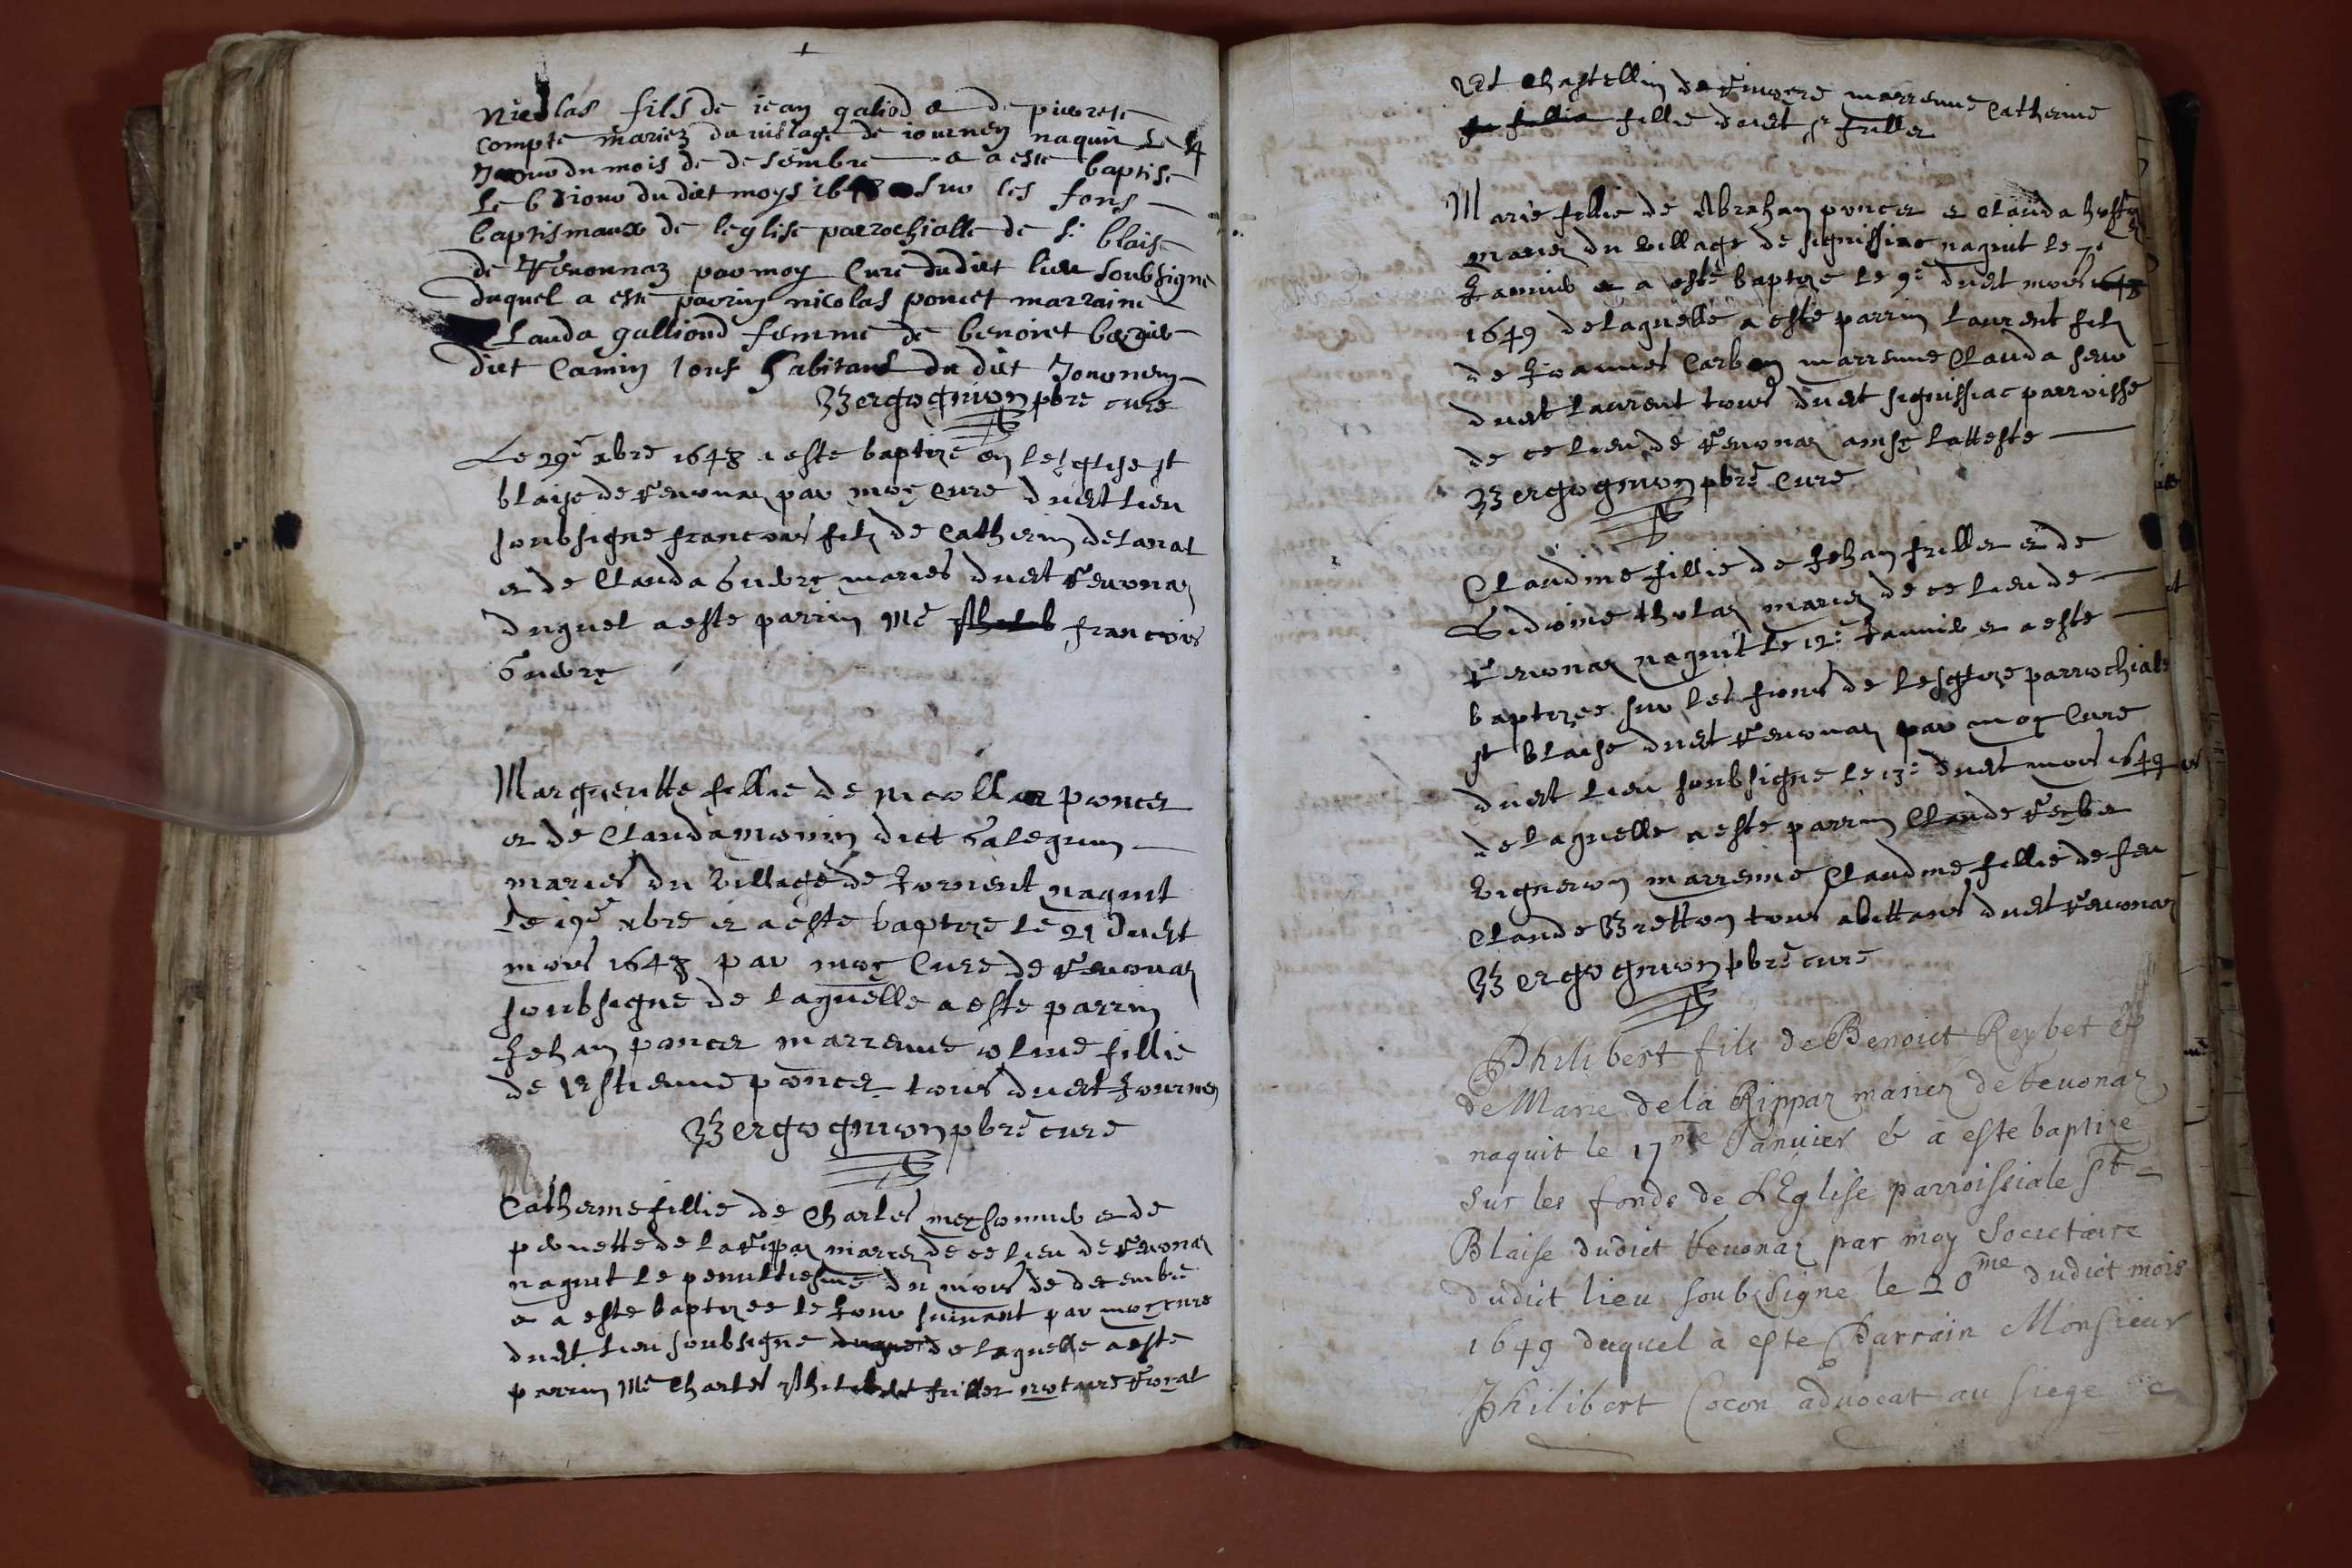 Nicolas fils de iean galiod & de pierrete
compte mariez du village de iournen naquit Le 4
Jour du mois de desembre & a este baptise
Le 6 Jour du dict moys 1648 sur les fons
baptismaux de leglise parrochialle de St blaise
de Revonnaz par moy Cure dudict lieu soubsigne
duquel a este parrin nicolas poncet marraine
Clauda galliond femme de benoiet
dict Camin tous habitans du dict Journen
Bergognion pbre cure
Le 29e xbre 1648 a este baptize en lesglise st
blaise de Revonaz par moy Cure dudict lieu
soubsigne francois filz de Catherin delanat
et de Clauda maries dudict Revonaz
duquel a este parrin Me francois

Margueritte fillie de nicollas poncet
et de Clauda monin dict
maries du Village de Jornent naquit
Le 19e xbre et a este baptize le 21 dudict
mois 1648 par moy Cure de Revonaz
soubsigne de laquelle a este parrin
Jehan poncet marrenne fillie
de Estienne poncet tous dudict Journen
Bergognion pbre cure
Catherine fillie de Charles meysonnier et de
pernette de la Rippaz mariez de ce lieu de Revonaz
naquit le penultiesme du mois de decembre
et a este baptizee le Jour suivant par moy cure
dudict lieu soubsigne duquel de laquelle a este
parrin Me Charles philibert notaire Royal
et Chastellin de marrenne Catherine
fillie fillie dudict sr
Marie fillie de Abraham poncet et Clauda
mariez du Village de signissiac naquit le 7e
Janvier et a este baptize le 9e dudict mois 1648
1649 de laquelle a este parrin Laurent filz
de Joannes Carbon marrenne Clauda seur
dudict Laurent tous dudict signissiac parroisse
de ce lieu de Revonaz ainsy latteste
Bergognion pbre cure
Claudine fillie de Jehan et de
Sidoine mariez de ce lieu de
Revonaz naquit le 12e Janvier et a este
baptizee sur les fons de lesglize parrochiale
st blaise dudict Revonaz par moy Cure
dudict lieu soubsigne le 13e dudict mois 1649
de laquelle a este parrin Claude
Vigneron marrenne Claudine fillie de feu
Claude Bretton tous abittans dudict Revonaz
Bergognion pbre cure
Philibert fils de Benoict Reybet &
de Marie de la Rippaz mariez de Revonaz
naquit le 17me Januier & à este baptize
sur les fonds de LEglise parroissiale St
Blaise dudict Revonaz par moy Societaire
dudict lieu soubsigne le 20me dudict mois
1649 duquel à este Parrain Monsieur
Philibert Cocon aduocat au siege de